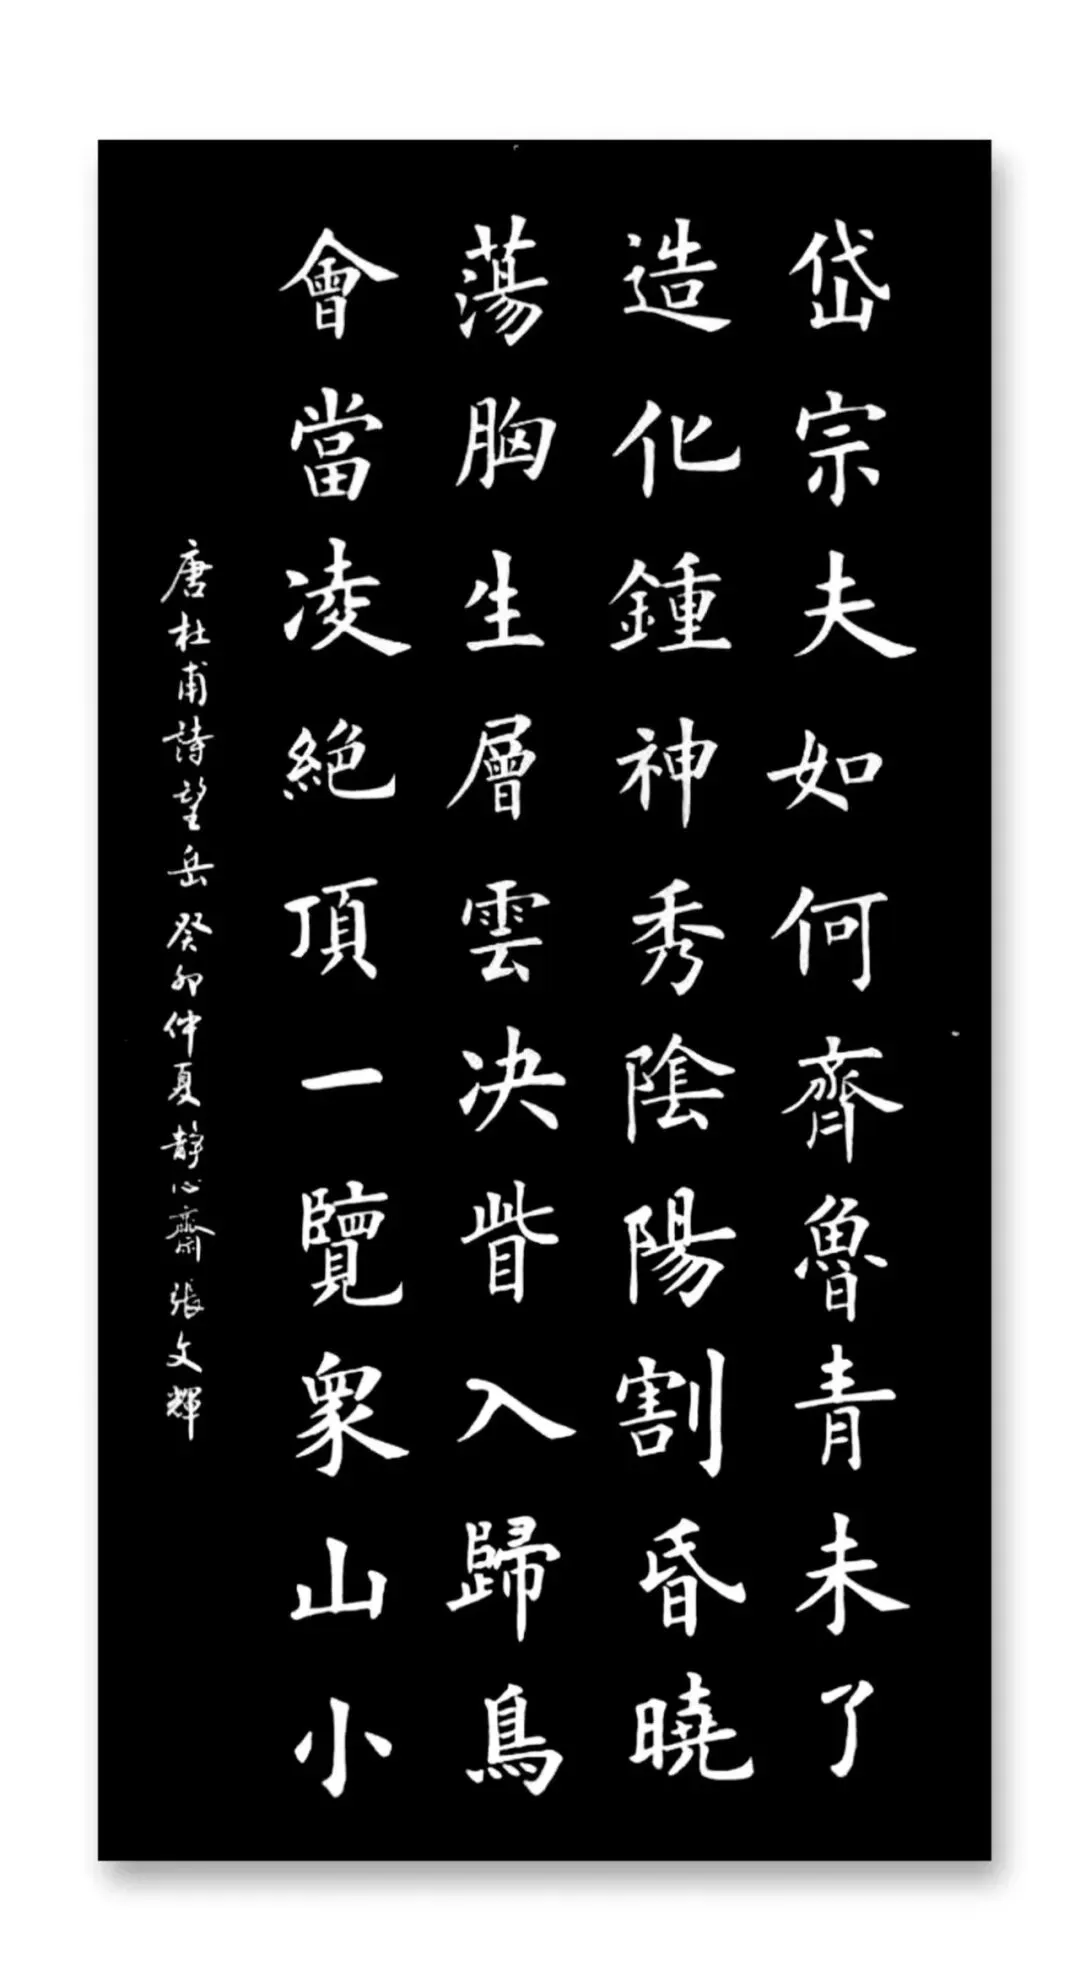 岱宗夫如何齊魯青未了
造化鍾神秀陰陽割昏曉
蕩胸生層雲决眥入歸鳥
會當凌絕頂一覽衆山小
唐杜甫詩望岳癸卯仲夏靜心齋張文輝